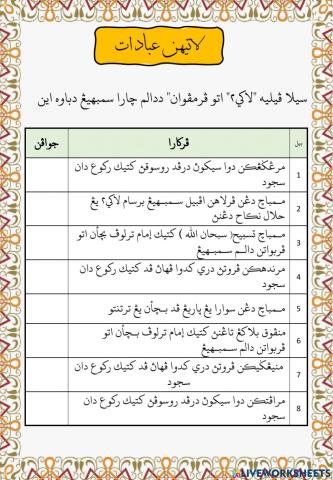 لاتيهن عبادات
سيلا ڤيليه "لاكي٢" اتو ڤرمڤوان" ددالم چارا سمبهيڠ دباوه اين
بيل ڤركارا جواڤن
1 مرڠݢڠكن دوا سيكوڽ درڤد روسوقڽ كتيك ركوع دان
سجود
2 ممباچ دڠن ڤرلاهن اڤبيل سمبهيڠ برسام لاكي٢ يڠ
حلال نكاح دڠنڽ
3 ممباچ تسبيح( سبحان الله ) كتيك إمام ترلوڤ بچأن اتو
ڤربواتن دالم سمبهيڠ
4 مرندهكن ڤروتڽ دري كدوا ڤهاڽ ڤد كتيك ركوع دان
سجود
5 ممباچ دڠن سوارا يڠ ڽاريڠ ڤد بچأن يڠ ترتنتو
6 منڤوق بلاكڠ تاڠنڽ كتيك إمام ترلوڤ بچأن اتو
ڤربواتن دالم سمبهيڠ
7 منيڠݢيكن ڤروتڽ دري كدوا ڤهاڽ ڤد كتيك ركوع دان
سجود
8 مراڤتكن دوا سيكوڽ درڤد روسوقڽ كتيك ركوع دان
سجود
LIVEWORKSHEETS